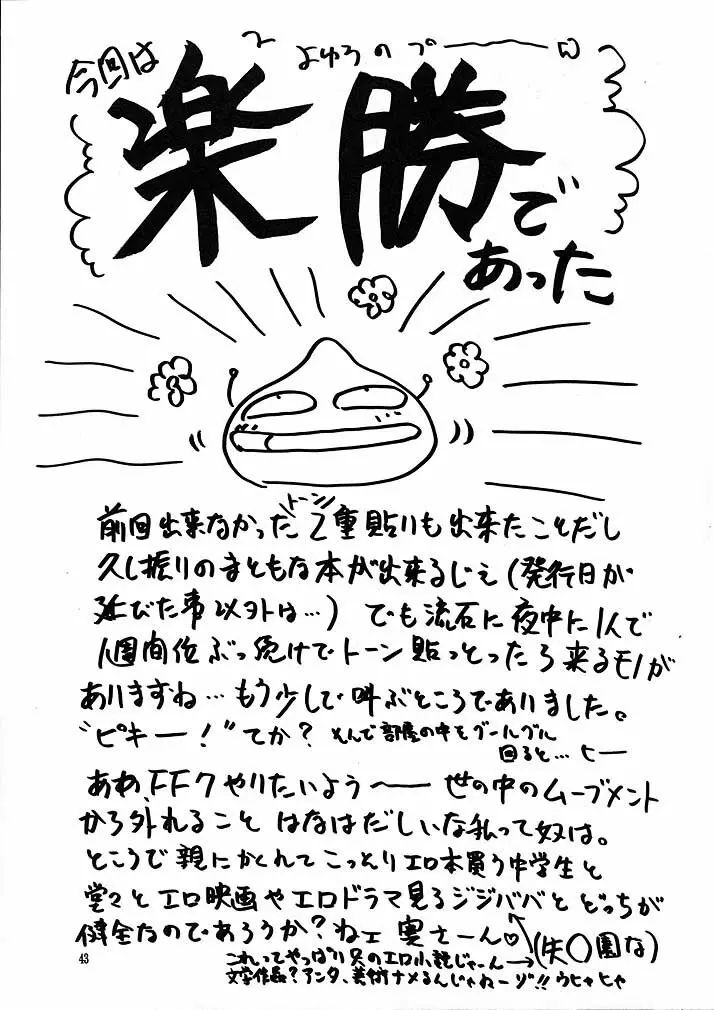 今回は
よゆうのプーーーー
楽勝で
あった
トーン
前回出来なかった2重貼りも出来たことだし
久し振りのまともな本が出来るじぇ(発行日が
延びた事以外は…) でも流石に夜中に1人で
1週間位ぶっ続けでトーン貼っとったら来るモノが
ありますね…もう少しで叫ぶところでありました。
"ピキー!"てか? そんで部屋の中をグールグル
回ると… ヒー
あわ、FF7やりたいよう〜── 世の中のムーブメント
から外れること はなはだしいな私って奴は。
ところで親にかくれてこっそりエロ本買う中学生と
堂々とエロ映画やエロドラマ見るジジババとどっちが
健全なのであろうか?ねェ奥さーん♡ (失〇園な)
これってやっぱり只のエロ小説じゃーん→
文学作品?アンタ、美術ナメるんじゃねーゾ!!ウヒャヒャ
43